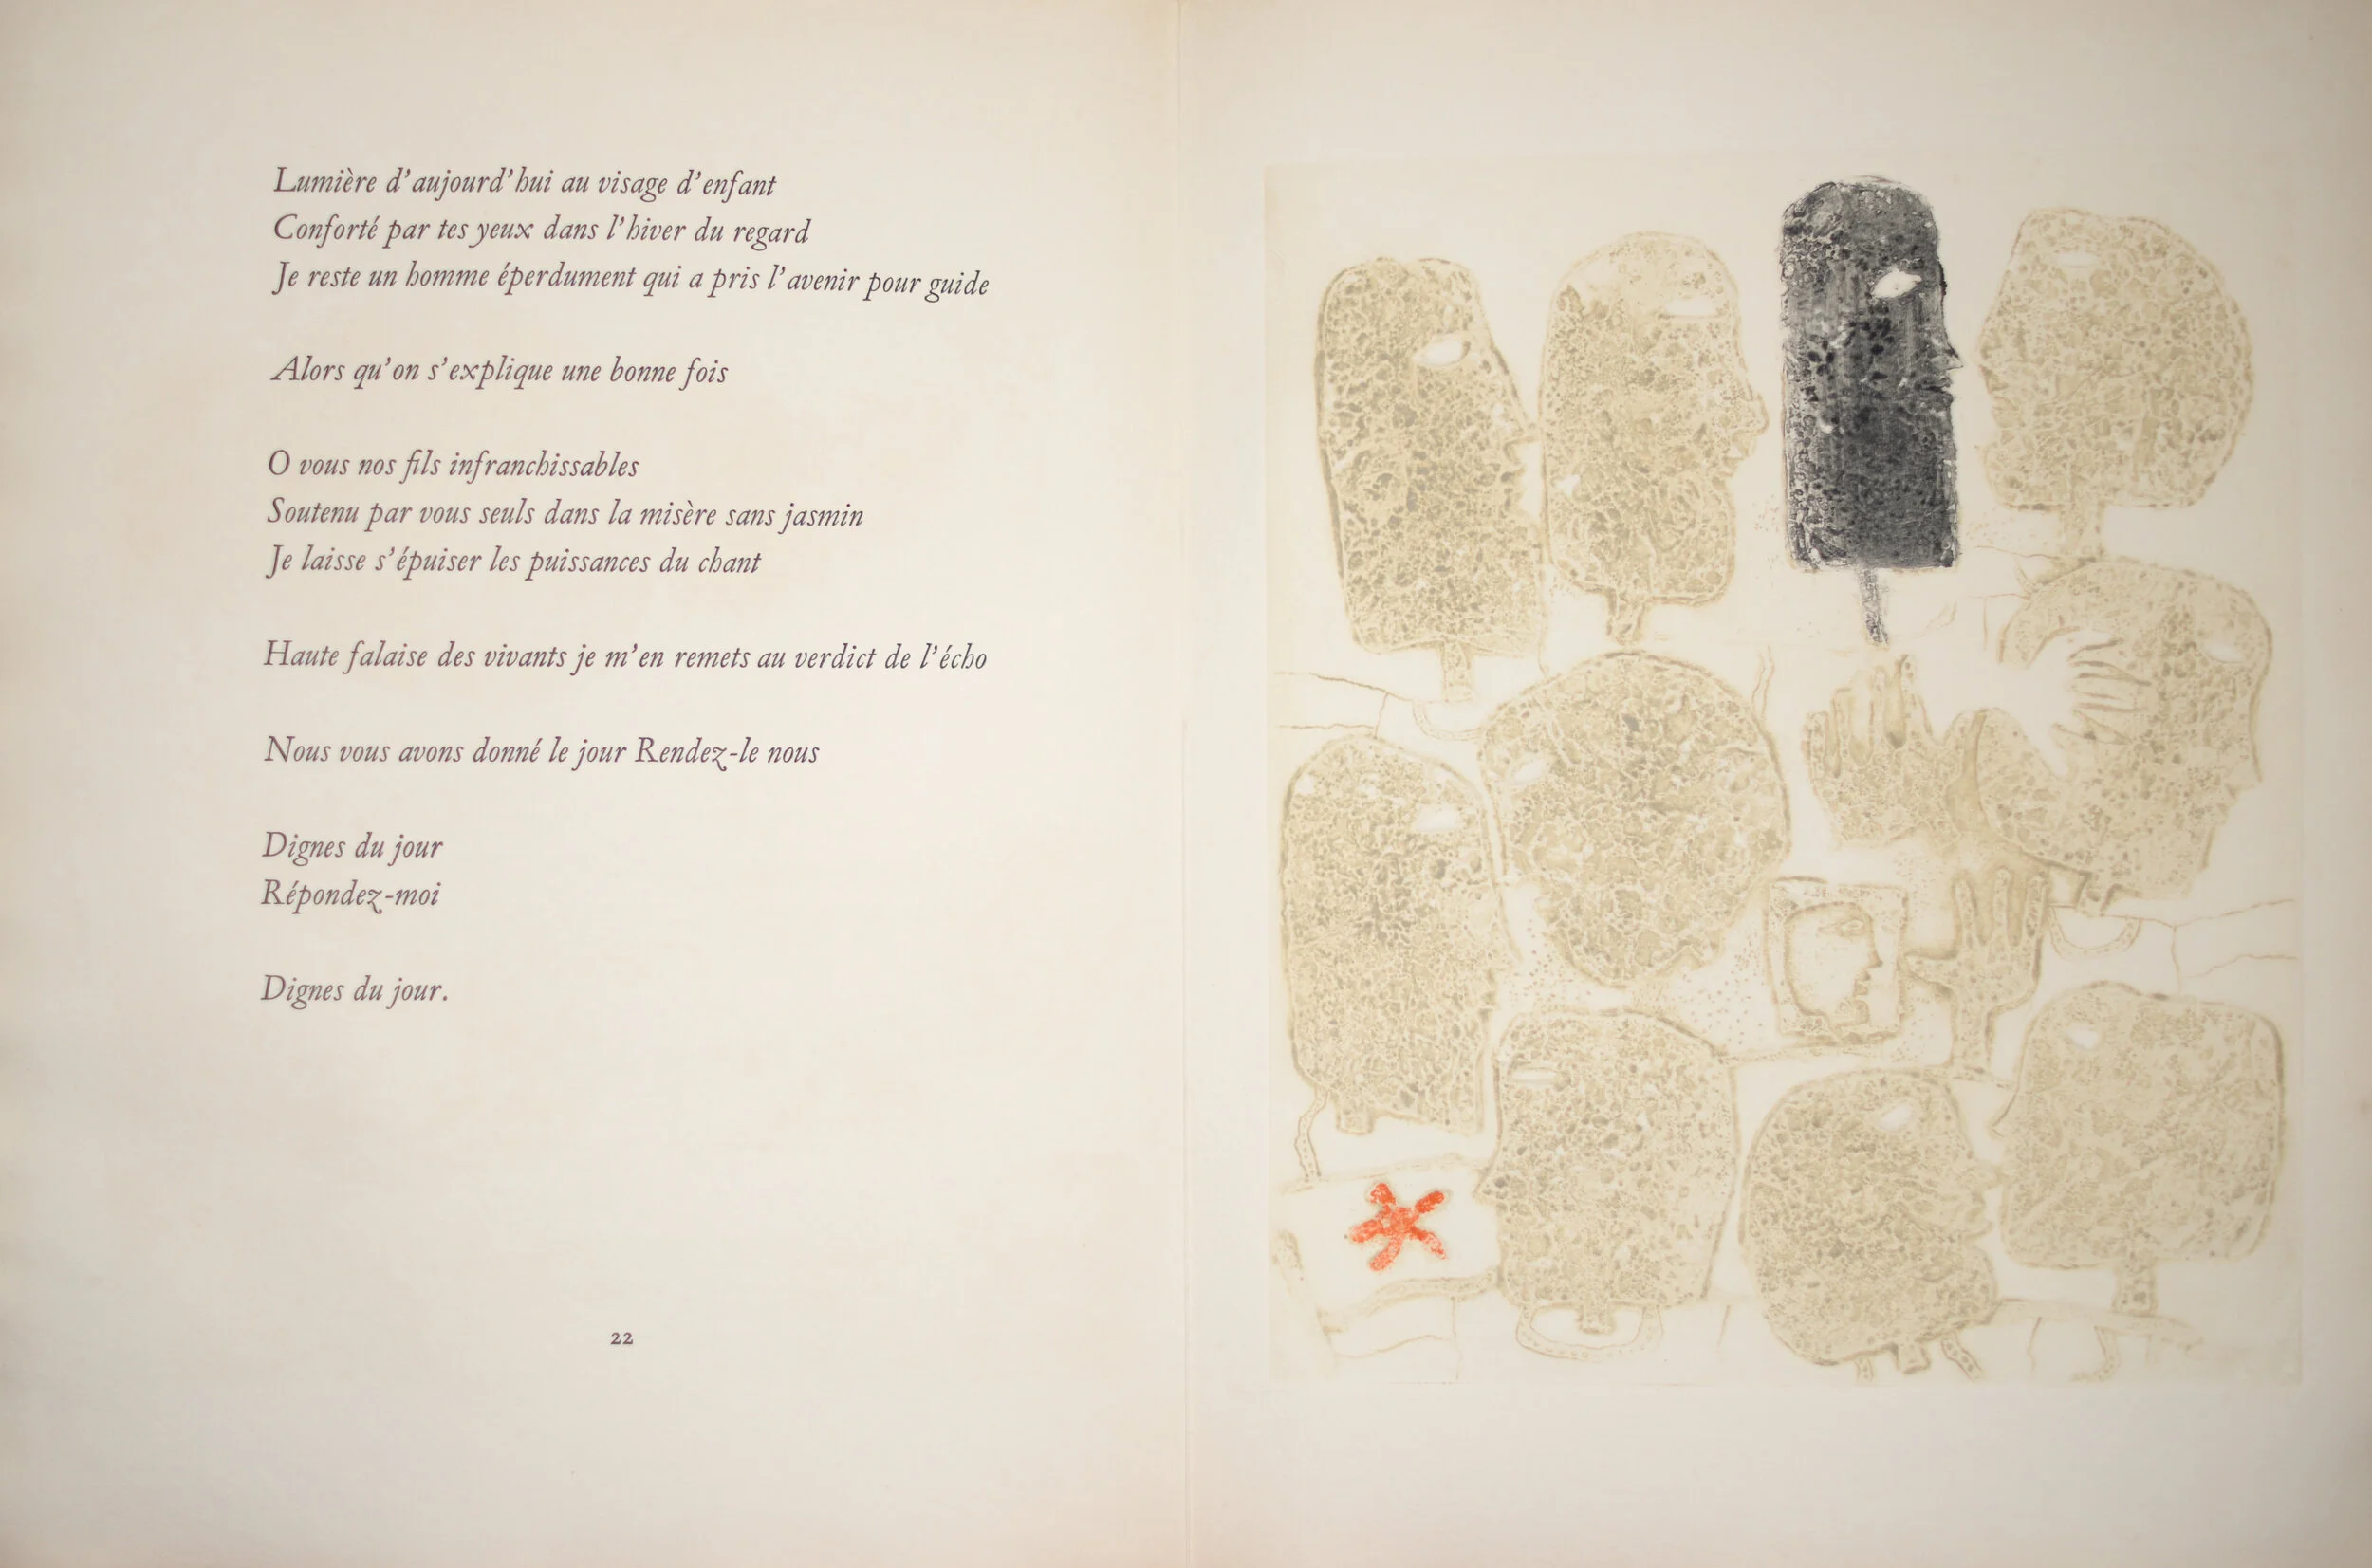 Lumière d'aujourd'hui au visage d'enfant
Conforté par tes yeux dans l'hiver du regard
Je reste un homme éperdument qui a pris l'avenir pour guide
Alors qu'on s'explique une bonne fois
O vous nos fils infranchissables
Soutenu par vous seuls dans la misère sans jasmin
Je laisse s'épuiser les puissances du chant
Haute falaise des vivants je m'en remets au verdict de l'écho
Nous vous avons donné le jour Rendez-le nous
Dignes du jour
Répondez-moi
Dignes du jour.
22